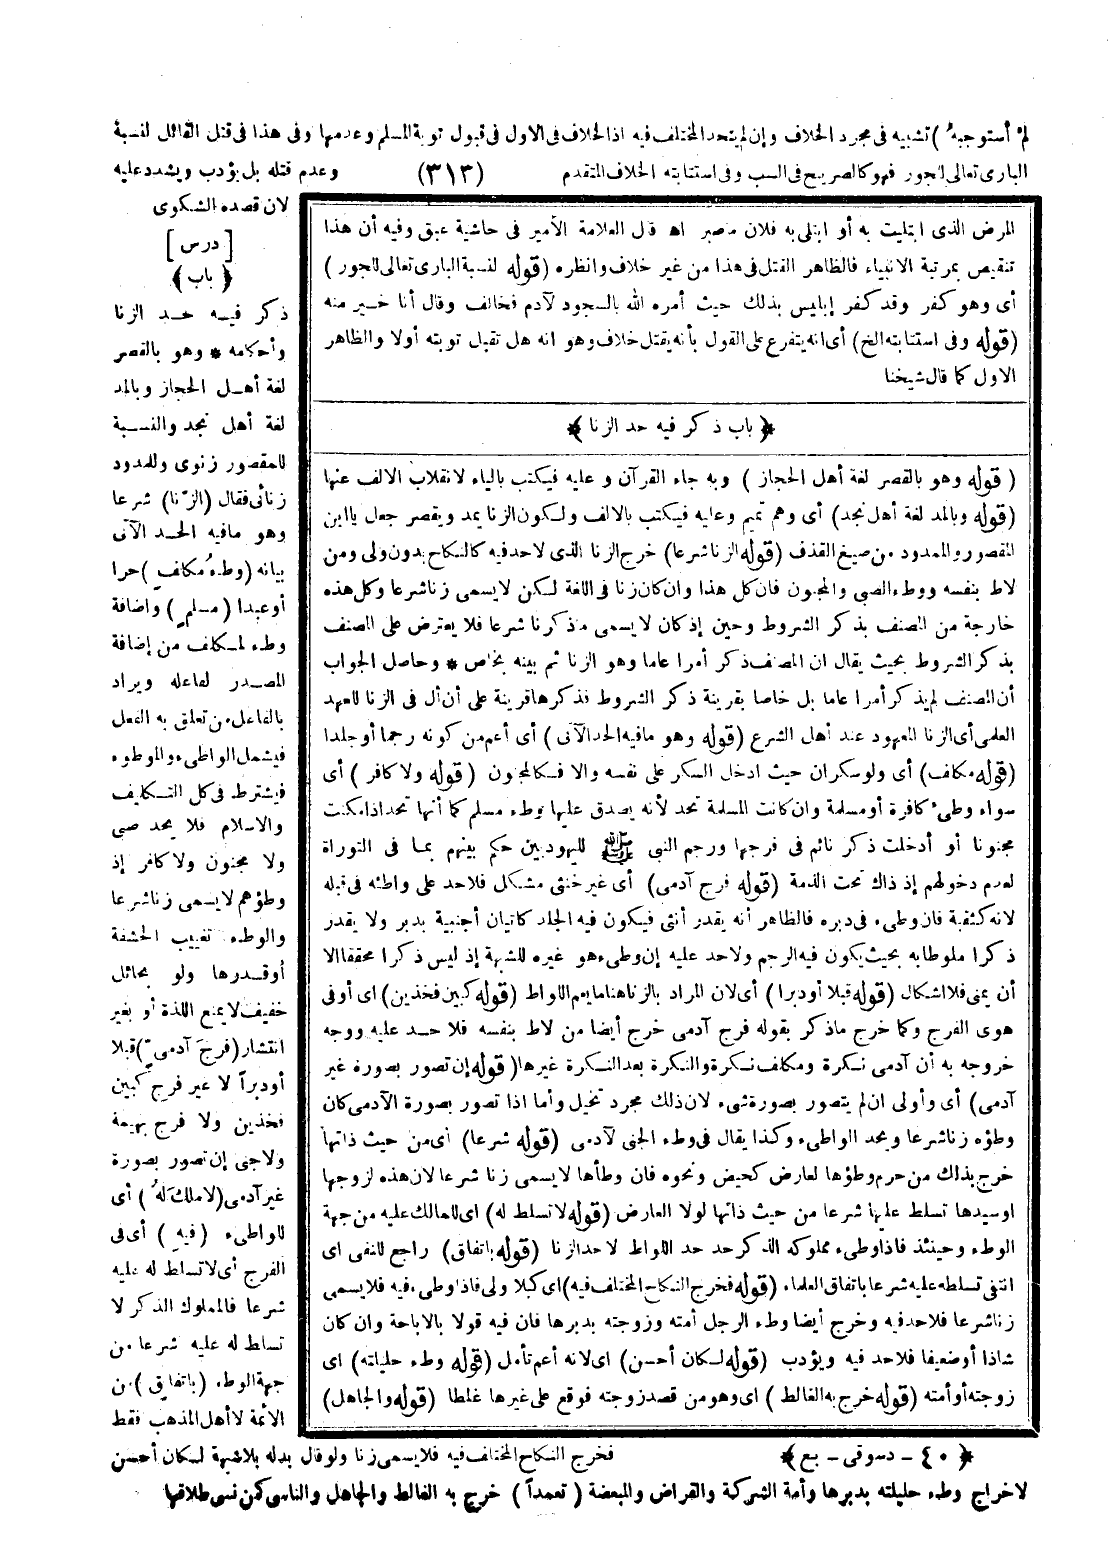 لم أستوجبه) تشبيه فى مجرد الخلاف وإن لم يتحد المختلف فيه اذ الخلاف فى الاول فى قبول توبة المسلم وعدمها وفى هذا فى قتل القائل لنسبة
البارى تعالى لاجور فهو كالصريح فى السب وفى استتابته الخلاف المتقدم (٣١٣) وعدم قتله بل يؤدب ويشدد عليه
لان قصده الشكوى
[درس]
﴿باب﴾
ذكر فيه حد الزنا
وأحكامه * وهو بالقصر
لغة أهل الحجاز وبالمد
لغة أهل نجد والنسبة
للمقصور زنوى وللمدود
زنائى فقال (الزنا) شرعا
وهو مافيه الحد الآتى
بيانه (وطء مكلف) حرا
أو عبدا (مسلم) واضافة
وطء لمكلف من إضافة
المصدر لفاعله ويراد
بالفاعل من تعلق به الفعل
فيشمل الواطىء والموطوء
فيشترط فى كل التكليف
والاسلام فلا يحد صبى
ولا مجنون ولا كافر إذ
وطؤهم لا يسمى زنا شرعا
والوطء تغييب الحشفة
أوقدرها ولو بحائل
خفيف لا يمنع اللذة أو بغير
انتشار (فرج آدمى) قبلا
أودبراً لا غير فرج كبين
فخذين ولا فرج بهيمة
ولاجنى إن تصور بصورة
غير آدمى (لاملك له) أى
للواطىء (فيه) أى فى
الفرج أى لا تسلط له عليه
شرعا فالمملوك الذكر لا
تسلط له عليه شرعا من
جهة الوطء (باتفاق) من
الائمة لا أهل المذهب فقط
المرض الذى ابتليت به أو ابتلى به فلان ماصبر اه قال العلامة الأمير فى حاشية عبق وفيه أن هذا
تنقيص بمرتبة الانبياء فالظاهر القتل فى هذا من غير خلاف وانظره (قوله لنسبة البارى تعالى للجور)
أى وهو كفر وقد كفر إبليس بذلك حيث أمره الله بالسجود لآدم فخالف وقال أنا خير منه
(قوله وفى استتابته الخ) أى انه يتفرع على القول بأنه يقتل خلاف وهو انه هل تقبل توبته أولا والظاهر
الاول كما قال شيخنا
﴿باب ذكر فيه حد الزنا﴾
(قوله وهو بالقصر لغة أهل الحجاز) وبه جاء القرآن وعليه فيكتب بالياء لانقلاب الالف عنها
(قوله وبالمد لغة أهل نجد) أى وهم تميم وعليه فيكتب بالالف ولكون الزنا يمد ويقصر جعل ياابن
المقصور والممدود من صيغ القذف (قوله الزنا شرعا) خرج الزنا الذى لاحد فيه كالنكاح بدون ولى ومن
لاط بنفسه ووطء الصبى والمجنون فان كل هذا وان كان زنا فى اللغة لكن لا يسمى زنا شرعا وكل هذه
خارجة من المصنف بذكر الشروط وحين إذ كان لا يسمى ماذكر زنا شرعا فلا يعترض على المصنف
بذكر الشروط بحيث يقال ان المصنف ذكر أمرا عاما وهو الزنا ثم بينه بخاص * وحاصل الجواب
أن المصنف لم يذكر أمرا عاما بل خاصا بقرينة ذكر الشروط فذكرها قرينة على أن أل فى الزنا للعهد
العلمى أى الزنا المعهود عند أهل الشرع (قوله وهو مافيه الحد الآتى) أى أعم من كونه رجما أو جلدا
(قوله مكلف) أى ولو سكران حيث ادخل السكر على نفسه والا فكالمجنون (قوله ولا كافر) أى
سواء وطىء كافرة أو مسلمة وان كانت المسلمة تحد لأنه يصدق عليها وطء مسلم كما أنها تحد اذا مكنت
مجنونا أو أدخلت ذكر نائم فى فرجها ورجم النبى ﷺ لليهوديين حكم بينهم بما فى التوراة
لعدم دخولهم إذ ذاك تحت الذمة (قوله فرج آدمى) أى غير خنثى مشكل فلاحد على واطئه فى قبله
لانه كثقبة فان وطىء فى دبره فالظاهر أنه يقدر أنثى فيكون فيه الجلد كاتيان أجنبية بدبر ولا يقدر
ذكرا ملوطابه بحيث يكون فيه الرجم ولاحد عليه إن وطىء هو غيره للشبهة إذ ليس ذكرا محققا الا
أن يمنى فلا اشكال (قوله قبلا أو دبرا) أى لان المراد بالزنا هنا مايعم اللواط (قوله كبين فخذين) اى أوفى
هوى الفرج وكما خرج ماذكر بقوله فرج آدمى خرج أيضا من لاط بنفسه فلا حد عليه ووجه
خروجه به أن آدمى نكرة ومكلف نكرة والنكرة بعد النكرة غيرها (قوله إن تصور بصورة غير
آدمى) أى وأولى ان لم يتصور بصورة شىء لان ذلك مجرد تخيل وأما اذا تصور بصورة الآدمى كان
وطؤه زنا شرعا ويحد الواطىء وكذا يقال فى وطء الجنى لآدمى (قوله شرعا) أى من حيث ذاتها
خرج بذلك من حرم وطؤها لعارض كحيض ونحوه فان وطأها لا يسمى زنا شرعا لان هذه لزوجها
اوسيدها تسلط عليها شرعا من حيث ذاتها لولا العارض (قوله لا تسلط له) اى للمالك عليه من جهة
الوطء وحينئذ فاذا وطىء مملوكه الذكر حد حد اللواط لاحد الزنا (قوله باتفاق) راجع للنفى اى
انتفى تسلطه عليه شرعا باتفاق العلماء (قوله فخرج النكاح المختلف فيه) اى كبلا ولى فاذا وطىء فيه فلا يسمى
زنا شرعا فلاحد فيه وخرج أيضا وطء الرجل أمته وزوجته بدبرها فان فيه قولا بالاباحة وان كان
شاذا أو ضعيفا فلاحد فيه ويؤدب (قوله لكان أحسن) اى لانه أعم تأمل (قوله وطء حليلته) اى
زوجته أو أمته (قوله خرج به الغالط) اى وهو من قصد زوجته فوقع على غيرها غلطا (قوله والجاهل)
﴿٤٠ - دسوقى - بع﴾ فخرج النكاح المختلف فيه فلا يسمى زنا ولو قال بدله بلا شبهة لكان أحسن
لاخراج وطء حليلته بدبرها وأمة الشركة والقراض والمبعضة (تعمداً) خرج به الغالط والجاهل والناسى كمن نسى طلاقها